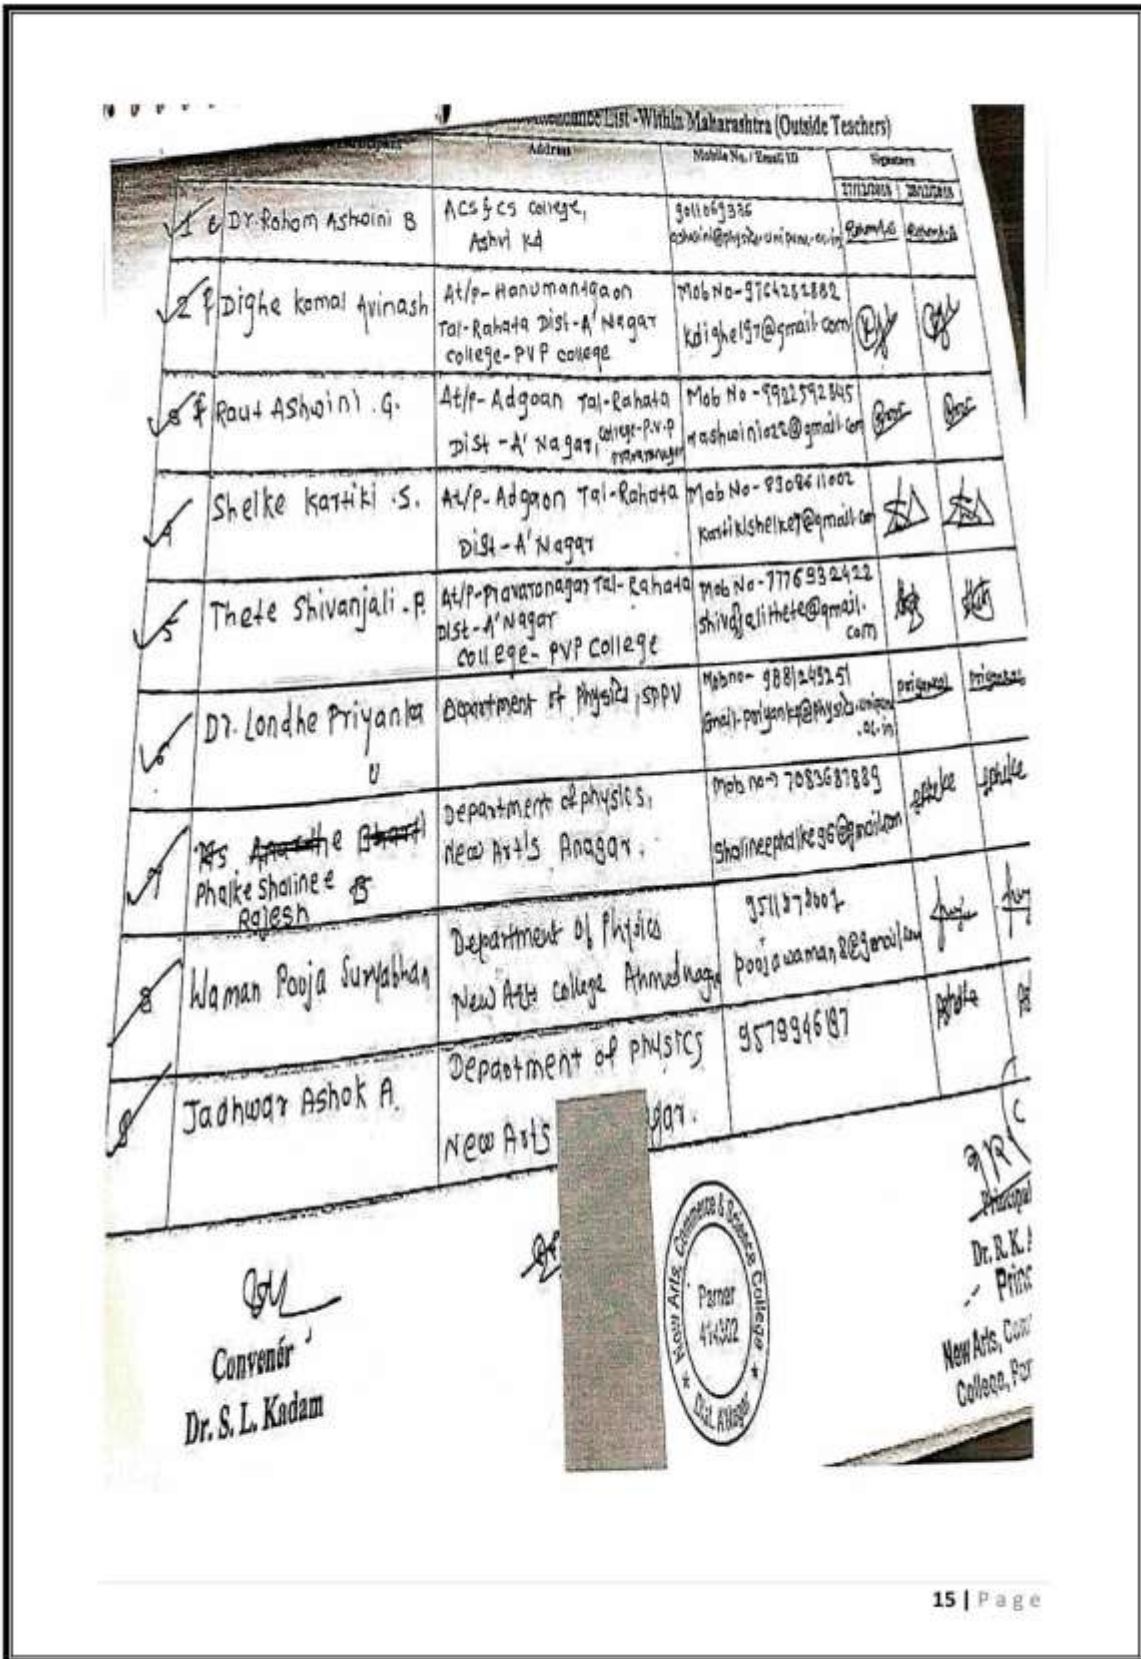 List -Within Maharashtra (Outside Teachers)
Address Mobile No. / Email ID Signature
27/12/2018 28/12/2018
1 Dr. Raham Ashwini B
ACS & CS College,
Ashvi Kd
9011069336
2 Dighe Komal Avinash
At/p- Hanumantgaon
Tal-Rahata Dist-A'Nagar
college-PVP college
Mob No-9764282882
kdighe197@gmail.com
Raut Ashwini .G.
At/P- Adgoan Tal-Rahata
Dist -A' Nagar, college-P.V.P
Mob No -9922592845
rashwini022@gmail.com
4 Shelke Kartiki .S.
At/P-Adgaon Tal-Rahata
Dist-A'Nagar
Mob No-8308611002
5 Thete Shivanjali .P.
At/P-Pravaranagar Tal-Rahata
Dist-A'Nagar
college- PVP College
Mob No-7776932422
shivajalithete@gmail.
com
6 Dr. Londhe Priyanka
U
Department of Physics, SPPU
Mobno- 9881249251
priyanka priyanka
7 Phalke Shalinee
Rajesh
Department of physics,
New Art's Anagar.
Mob no-> 7083687889
shalineephalke96@gmail.com
8 Waman Pooja Suryabhan
Department of Physics
New Arts college Ahmednagar
poojawaman8@gmail.com
9 Jadhwar Ashok A.
Department of physics
New Arts gar.
9579946197
Convenér
Dr. S. L. Kadam
New Arts, Commerce & Science College
Parner
414302
Dist. A'Nagar
Principal
Dr. R. K. A
Princ
New Arts, Com
College, Par
15 | Page